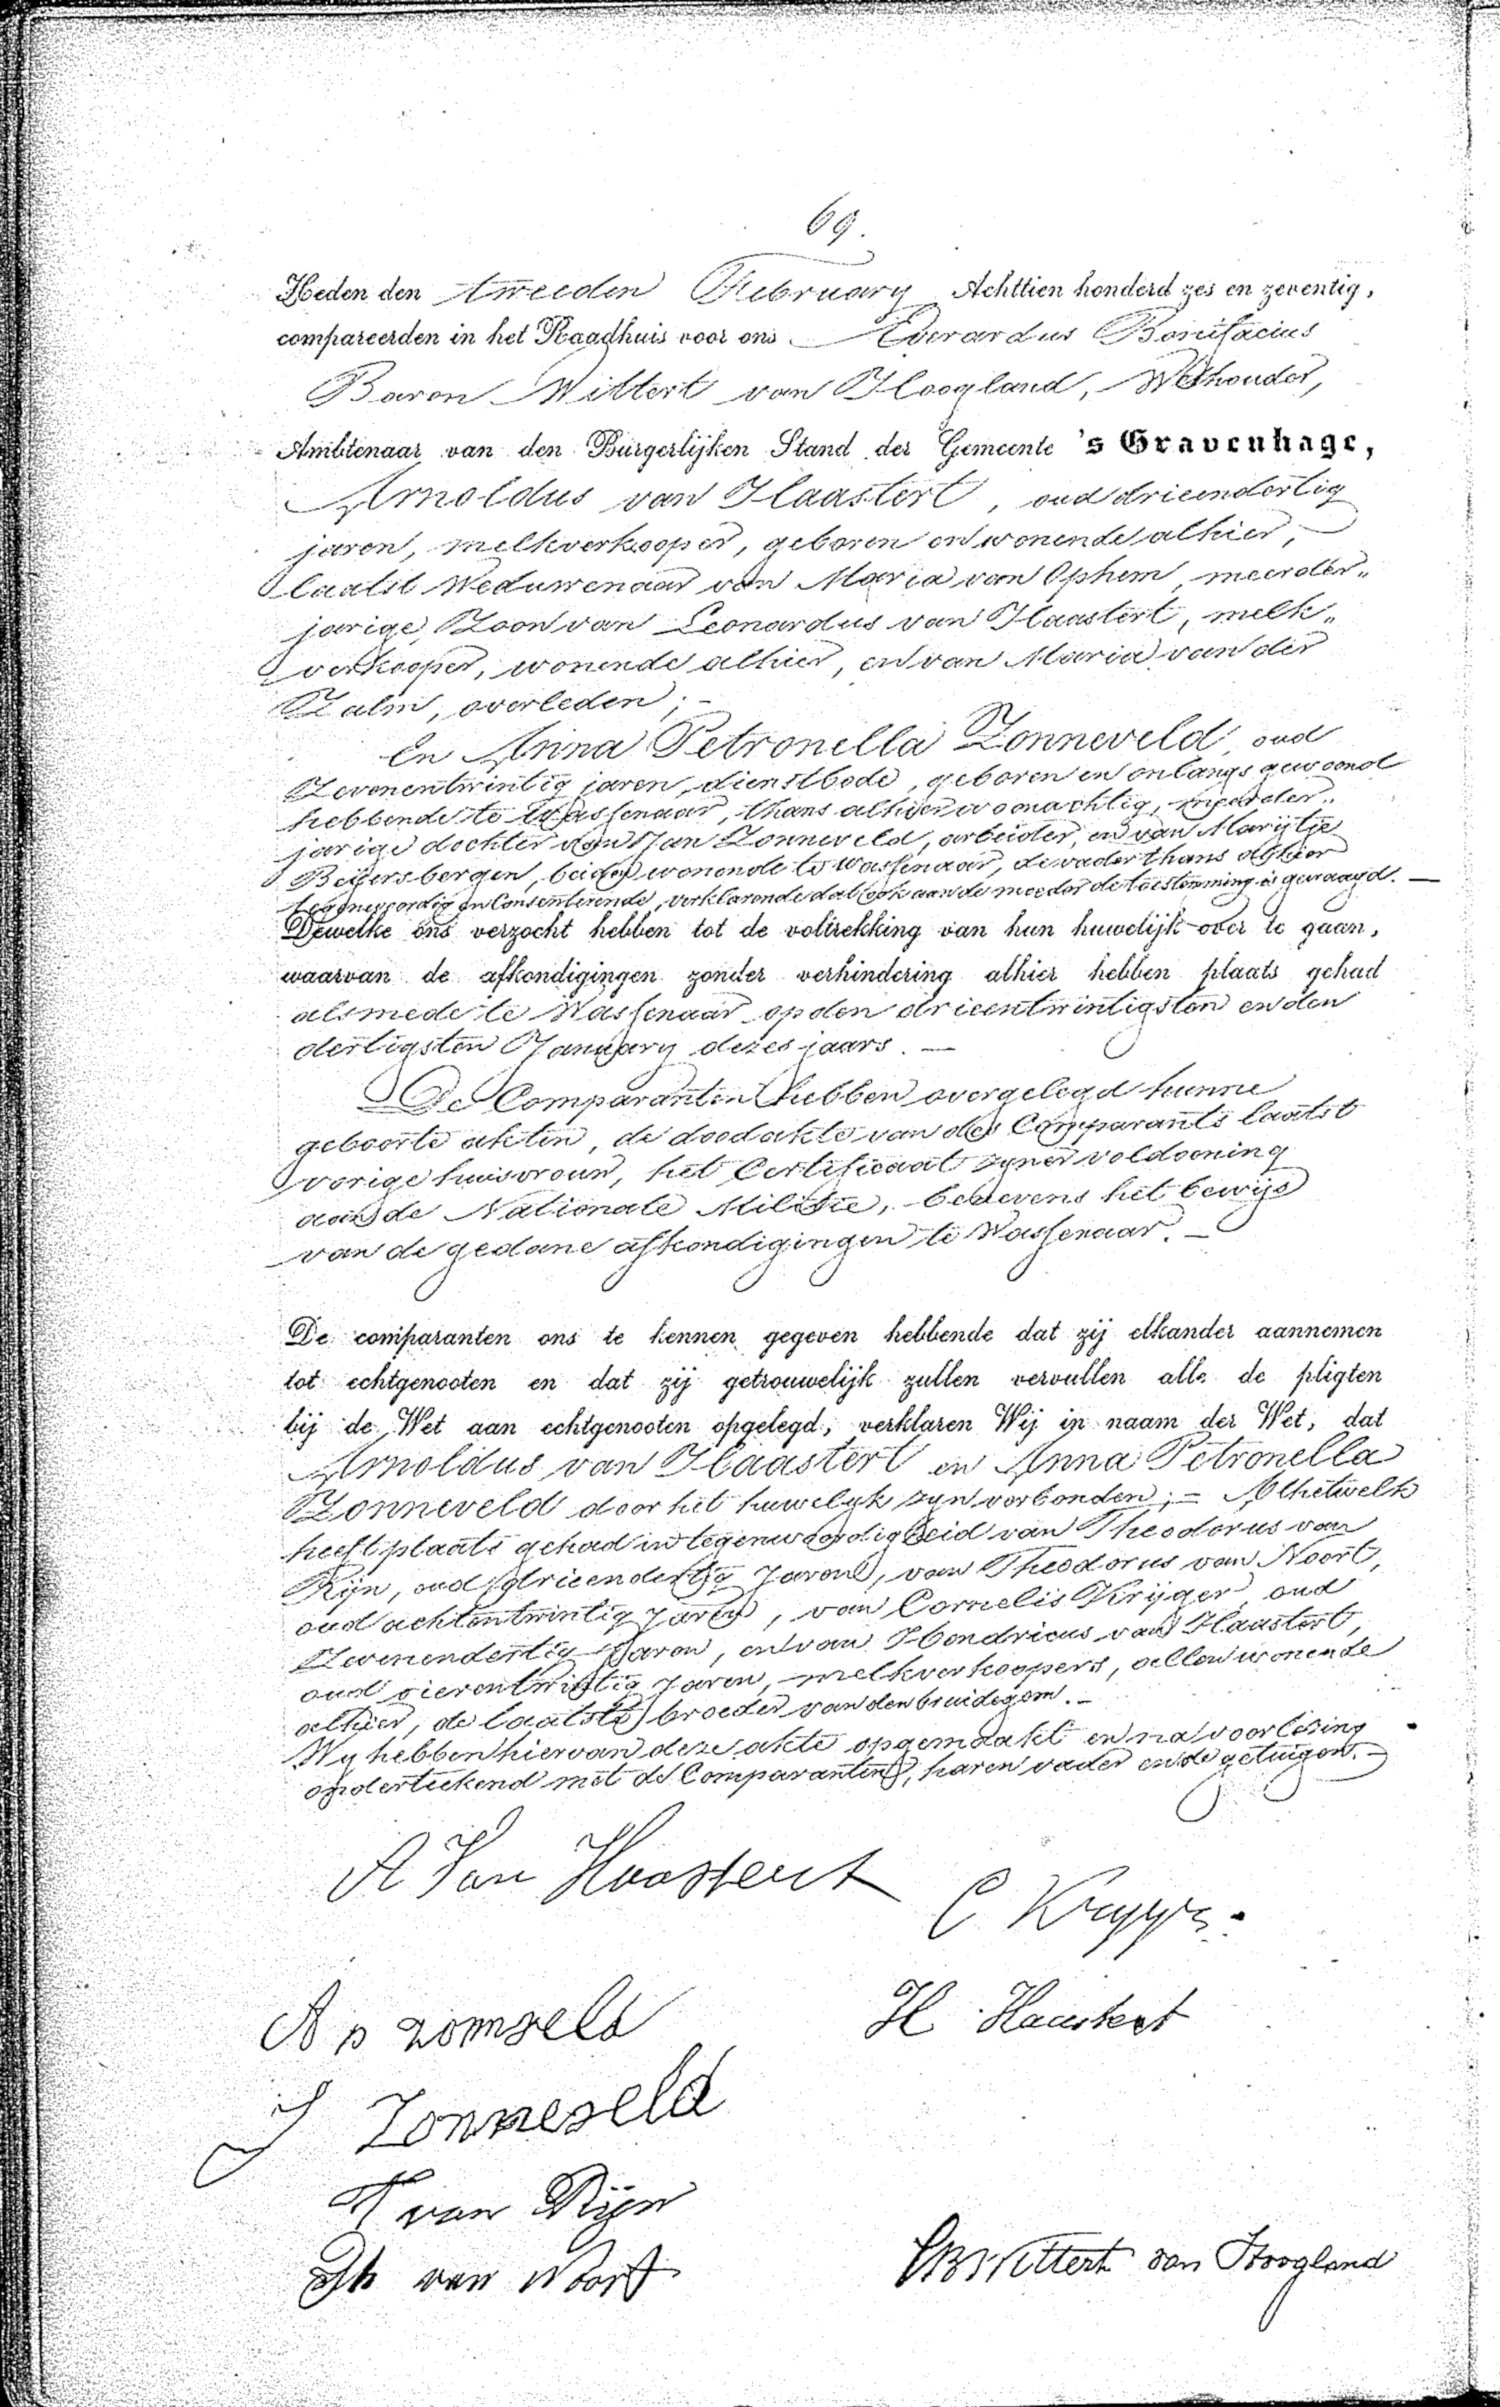 69.
Heden den tweeden February Achttien honderd zes en zeventig,
compareerden in het Raadhuis voor ons Everardus Bonifacius
Baron Wittert van Hoogland, Wethouder,
Ambtenaar van den Burgerlijken Stand der Gemeente 's Gravenhage,
Arnoldus van Haastert, oud drieendertig
jaren, melkverkooper, geboren en wonende alhier,
laatst Weduwenaar van Maria van Ophem, meerder„
jarige Zoon van Leonardus van Haastert, melk„
verkooper, wonende alhier, en van Maria van der
Zalm, overleden; –
En Anna Petronella Zonneveld oud
Zevenentwintig jaren, dienstbode, geboren en onlangs gewoond
hebbende te Wassenaar, thans alhier woonachtig, meerder„
jarige dochter van Jan Zonneveld, arbeider, en van Marijtje
Beijersbergen, beiden wonende te Wassenaar, de vader thans alhier
tegenwoordig en Consenterende, verklarende dat ook aan de moeder de toestemming is gevraagd. —
Dewelke ons verzocht hebben tot de voltrekking van hun huwelijk over te gaan,
waarvan de afkondigingen zonder verhindering alhier hebben plaats gehad
alsmede te Wassenaar op den drieentwintigsten en den
dertigsten January dezes jaars. —
De Comparanten hebben overgelegd hunne
geboorte akten, de doodakte van des Comparants laatst
vorige huisvrouw, het Certificaat zyner voldoening
aan de Nationale Militie, benevens het bewijs
van de gedane afkondigingen te Wassenaar. —
De comparanten ons te kennen gegeven hebbende dat zij elkander aannemen
tot echtgenooten en dat zij getrouwelijk zullen vervullen alle de pligten
bij de Wet aan echtgenooten opgelegd, verklaren Wij in naam der Wet, dat
Arnoldus van Haastert en Anna Petronella
Zonneveld door het huwelyk zyn verbonden; – Alhetwelk
heeft plaats gehad in tegenwoordigheid van Theodorus van
Rijn, oud drieendertig Jaren, van Theodorus van Noort,
oud achtentwintig Jaren, van Cornelis Krijger, oud
Zevenendertig Jaren, en van Hendricus van Haastert,
oud vierentwintig Jaren, melkverkoopers, allen wonende
alhier, de laatste broeder van den bruidegom. –
Wy hebben hiervan deze akte opgemaakt en na voorlezing
onderteekend met de Comparanten, haren vader en de getuigen. –
A Van Haastert
C Kryger.
A P zomveld
H. Haastert
J Zonneveld
T van Rijn
Th van Noort
EBWittert van Hoogland